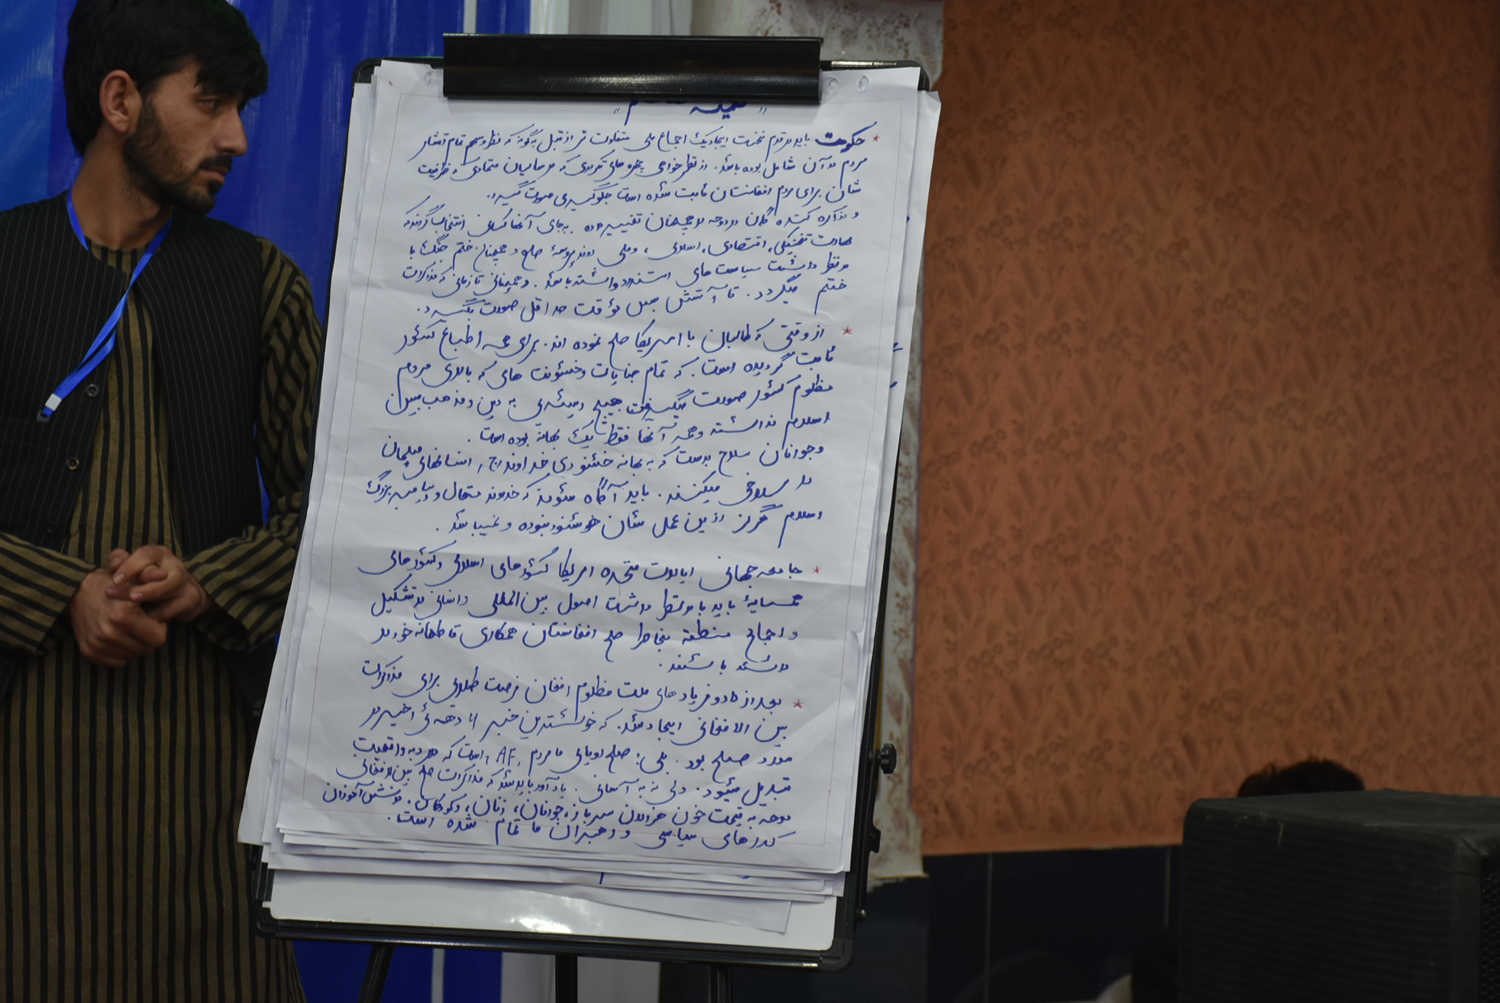 * حکومت باید در قدم نخست ایجاد یک اجماع ملی متفاوت تر از قبل بگونه که نظر و سهم تمام اقشار
مردم در آن شامل بوده باشد. از نظر خواهی چهره های تکراری که در سالیان متمادی ظرفیت
شان برای مردم افغانستان ثابت شده است جلوگیری صورت گیرد.
و مذاکره کننده گان در دوحه همچنان تغییر بجای آنها کسانی انتخاب گردند که
اقتصادی، اسلامی، و ملی پروسهٔ صلح و همچنان ختم جنگ با
در نظر داشت سیاست های داشته باشد. و همچنان تا زمانی که مذاکرات
ختم میگردد. تا آتش بس مؤقت حد اقل صورت بگیرد.
* از وقتی که طالبان با امریکا صلح نموده اند. برای همه کشور
ثابت گردیده است. که تمام جنایات و خشونت های که بالای مردم
مظلوم کشور صورت میگیرفت هیچ ریشه ی به دین و مذهب مبین
اسلام نداشته و همه آنها فقط یک بهانه بوده است.
و جوانان سلاح بدست که به بهانه خشنودی خداوند انسانهای مسلمان
را سلاخی میکنند. باید آگاه شوند که خداوند متعال و پیامبر بزرگ
اسلام هرگز ازین عمل شان خوشنود نبوده و نمیباشد.
* جامعه جهانی ایالات متحده امریکا کشورهای اسلامی و کشورهای
همسایهٔ باید با در نظر داشت اصول بین المللی و انسانی در تشکیل
و اجماع منطقه بخاطر صلح افغانستان همکاری قاطعانه خود را
داشته باشند.
* بعد از داد و فریاد های ملت مظلوم افغان فرصت طلایی برای مذاکرات
بین الافغانی ایجاد شد. که خبر دههٔ اخیر در
مورد صلح بود. بلی: صلح رویای ما مردم AF، است که به واقعیت
تبدیل میشود. ولی نه به آسانی. یادآور باید شد که مذاکرات صلح بین الافغانی
دوحه به قیمت خون هزاران سرباز، جوانان، زنان، و کودکان، دانش آموزان
کدرهای سیاسی و رهبران ما تمام شده است.